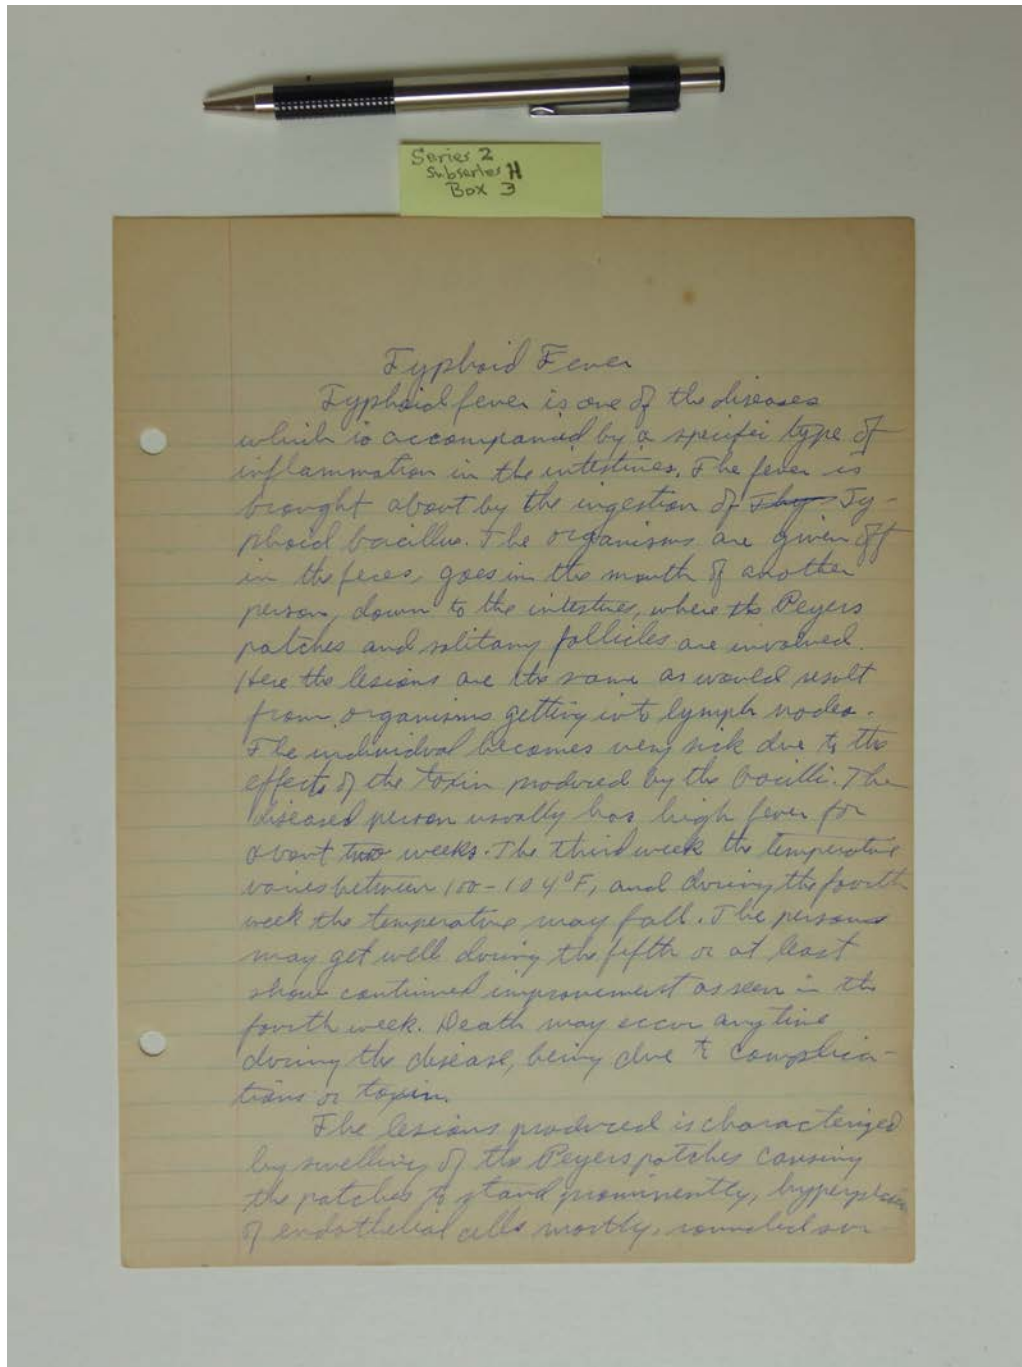 Series 2
Subseries H
Box 3
Typhoid Fever
Typhoid fever is one of the diseases
which is accompanied by a specific type of
inflammation in the intestines. The fever is
brought about by the ingestion of Thy Ty-
phoid bacillus. The organisms are given off
in the feces, goes in the mouth of another
person, down to the intestines, where the Peyers
patches and solitary follicles are involved.
Here the lesions are the same as would result
from organisms getting into lymph nodes.
The individual becomes very sick due to the
effects of the toxin produced by the bacilli. The
diseased person usually has high fever for
about two weeks. The third week the temperature
varies between 100-104°F, and during the fourth
week the temperature may fall. The persons
may get well during the fifth or at least
show continued improvement as seen in the
fourth week. Death may occur any time
during the disease, being due to complica-
tions or toxin.
The lesions produced is characterized
by swelling of the Peyers patches causing
the patches to stand prominently, hyperplasia
of endothelial cells mostly,